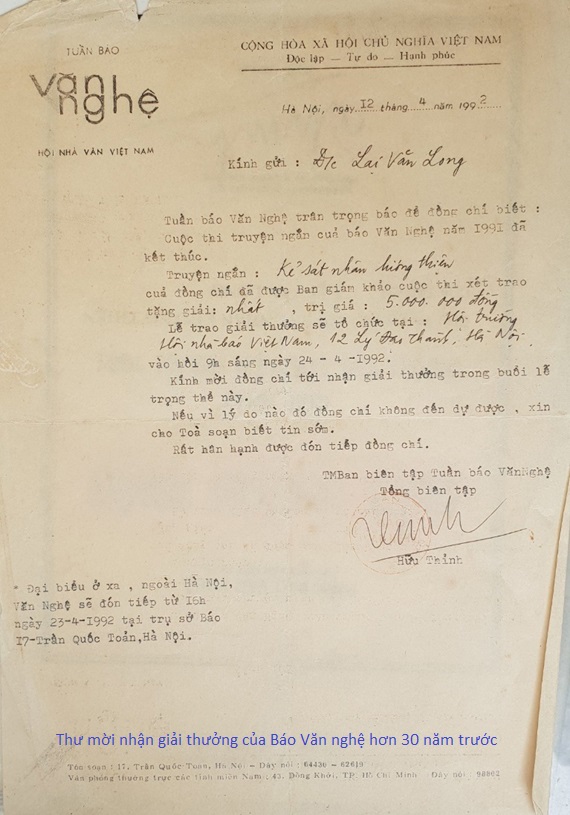 TUẦN BÁO
văn nghệ
HỘI NHÀ VĂN VIỆT NAM
CỘNG HÒA XÃ HỘI CHỦ NGHĨA VIỆT NAM
Độc lập — Tự do — Hạnh phúc
Hà Nội, ngày 12 tháng 4 năm 1992
Kính gửi : Đ/c Lại Văn Long
Tuần báo Văn Nghệ trân trọng báo để đồng chí biết :
Cuộc thi truyện ngắn cuả báo Văn Nghệ năm 1991 đã
kết thúc.
Truyện ngắn : Kẻ sát nhân lương thiện
cuả đồng chí đã được Ban giám khảo cuộc thi xét trao
tặng giải: nhất , trị giá : 5.000.000 đồng
Lễ trao giải thưởng sẽ tổ chức tại : Hội trường
Hội nhà báo Việt Nam, 12 Lý Đạo Thành, Hà Nội
vào hồi 9h sáng ngày 24 - 4 -1992.
Kính mời đồng chí tới nhận giải thưởng trong buổi lễ
trọng thể này.
Nếu vì lý do nào đó đồng chí không đến dự được , xin
cho Toà soạn biết tin sớm.
Rất hân hạnh được đón tiếp đồng chí.
TMBan biên tập Tuần báo VănNghệ
Tổng biên tập
Hữu Thỉnh
* Đại biểu ở xa , ngoài Hà Nội,
Văn Nghệ sẽ đón tiếp từ 15h
ngày 23-4-1992 tại trụ sở Báo
17-Trần Quốc Toản,Hà Nội.
Thư mời nhận giải thưởng của Báo Văn nghệ hơn 30 năm trước
Tòa soạn : 17, Trần Quốc Toản, Hà Nội — Dây nói : 64430 - 62619
Văn phòng thường trực các tỉnh miền Nam : 43, Đồng Khởi, TP. Hồ Chí Minh - Dây nói : 98062